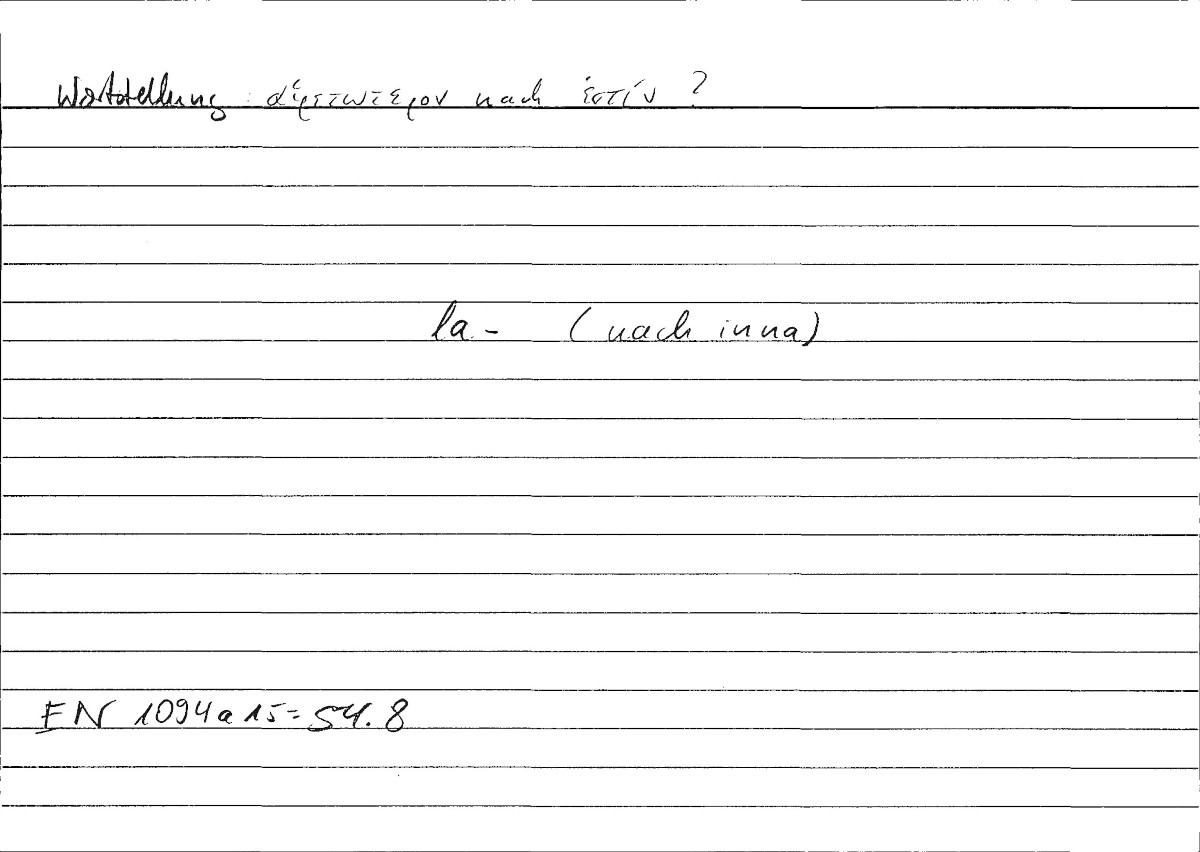 Wortstellung : αἱρετωτερον nach ἐστίν ?
la - (nach inna)
EN 1094a15 = 54.8